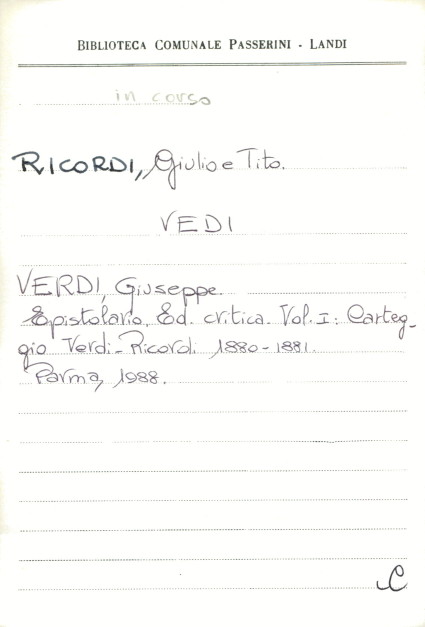 BIBLIOTECA COMUNALE PASSERINI - LANDI
in corso
RICORDI, Giulio e Tito.
VEDI
VERDI, Giuseppe.
Epistolario. Ed. critica. Vol. I: Carteg-
gio Verdi-Ricordi 1880-1881.
Parma, 1988.
C